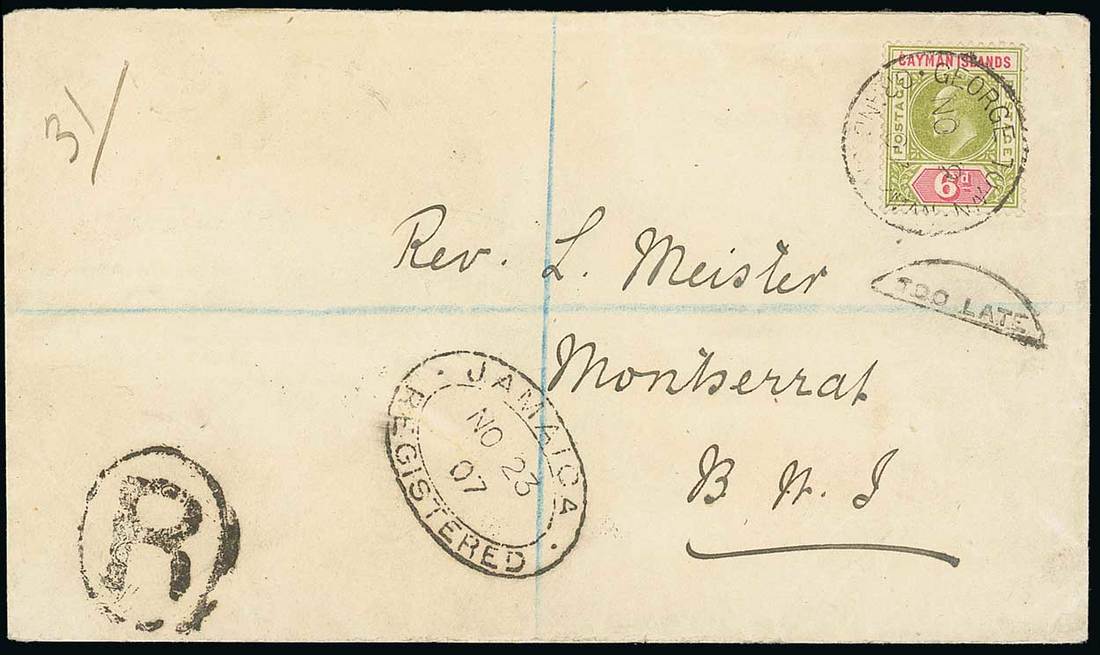 31/
CAYMAN ISLANDS
POSTAGE
6d
GEORGE TOWN
NO
TOO LATE
Rev. L. Meister
Montserrat
B W. I
JAMAICA
NO 23
07
REGISTERED
R